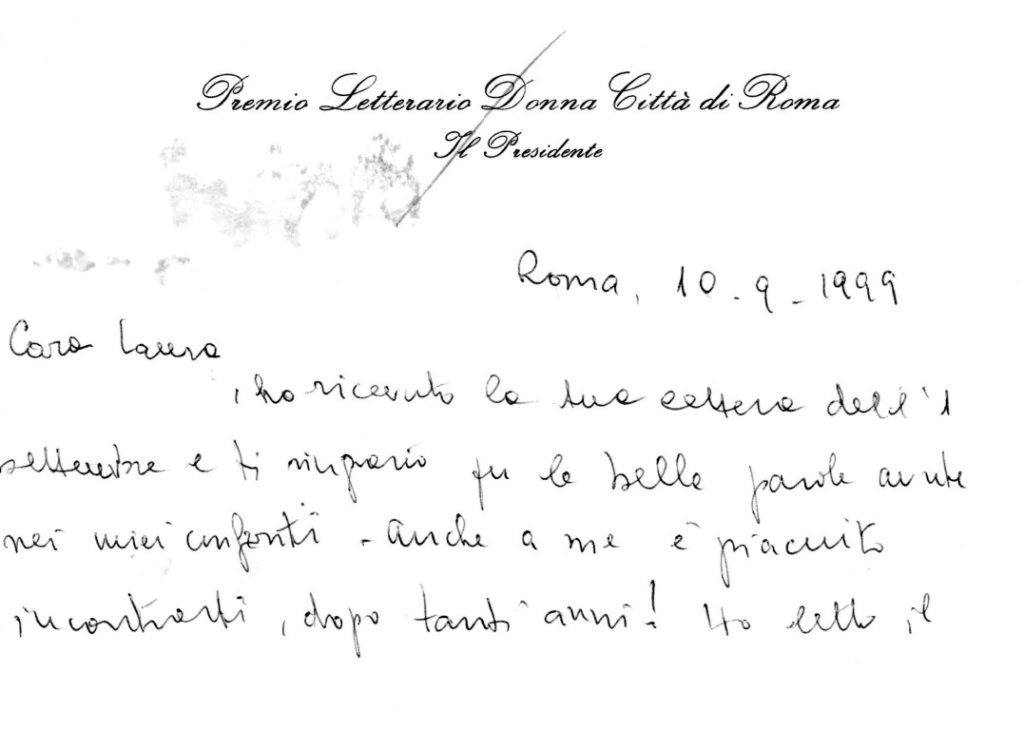 Premio Letterario Donna Città di Roma
Il Presidente
Roma, 10-9-1999
Cara Laura
, ho ricevuto la tua lettera dell'1
settembre e ti ringrazio per le belle parole avute
nei miei confronti - Anche a me è piaciuto
incontrarti, dopo tanti anni! Ho letto il